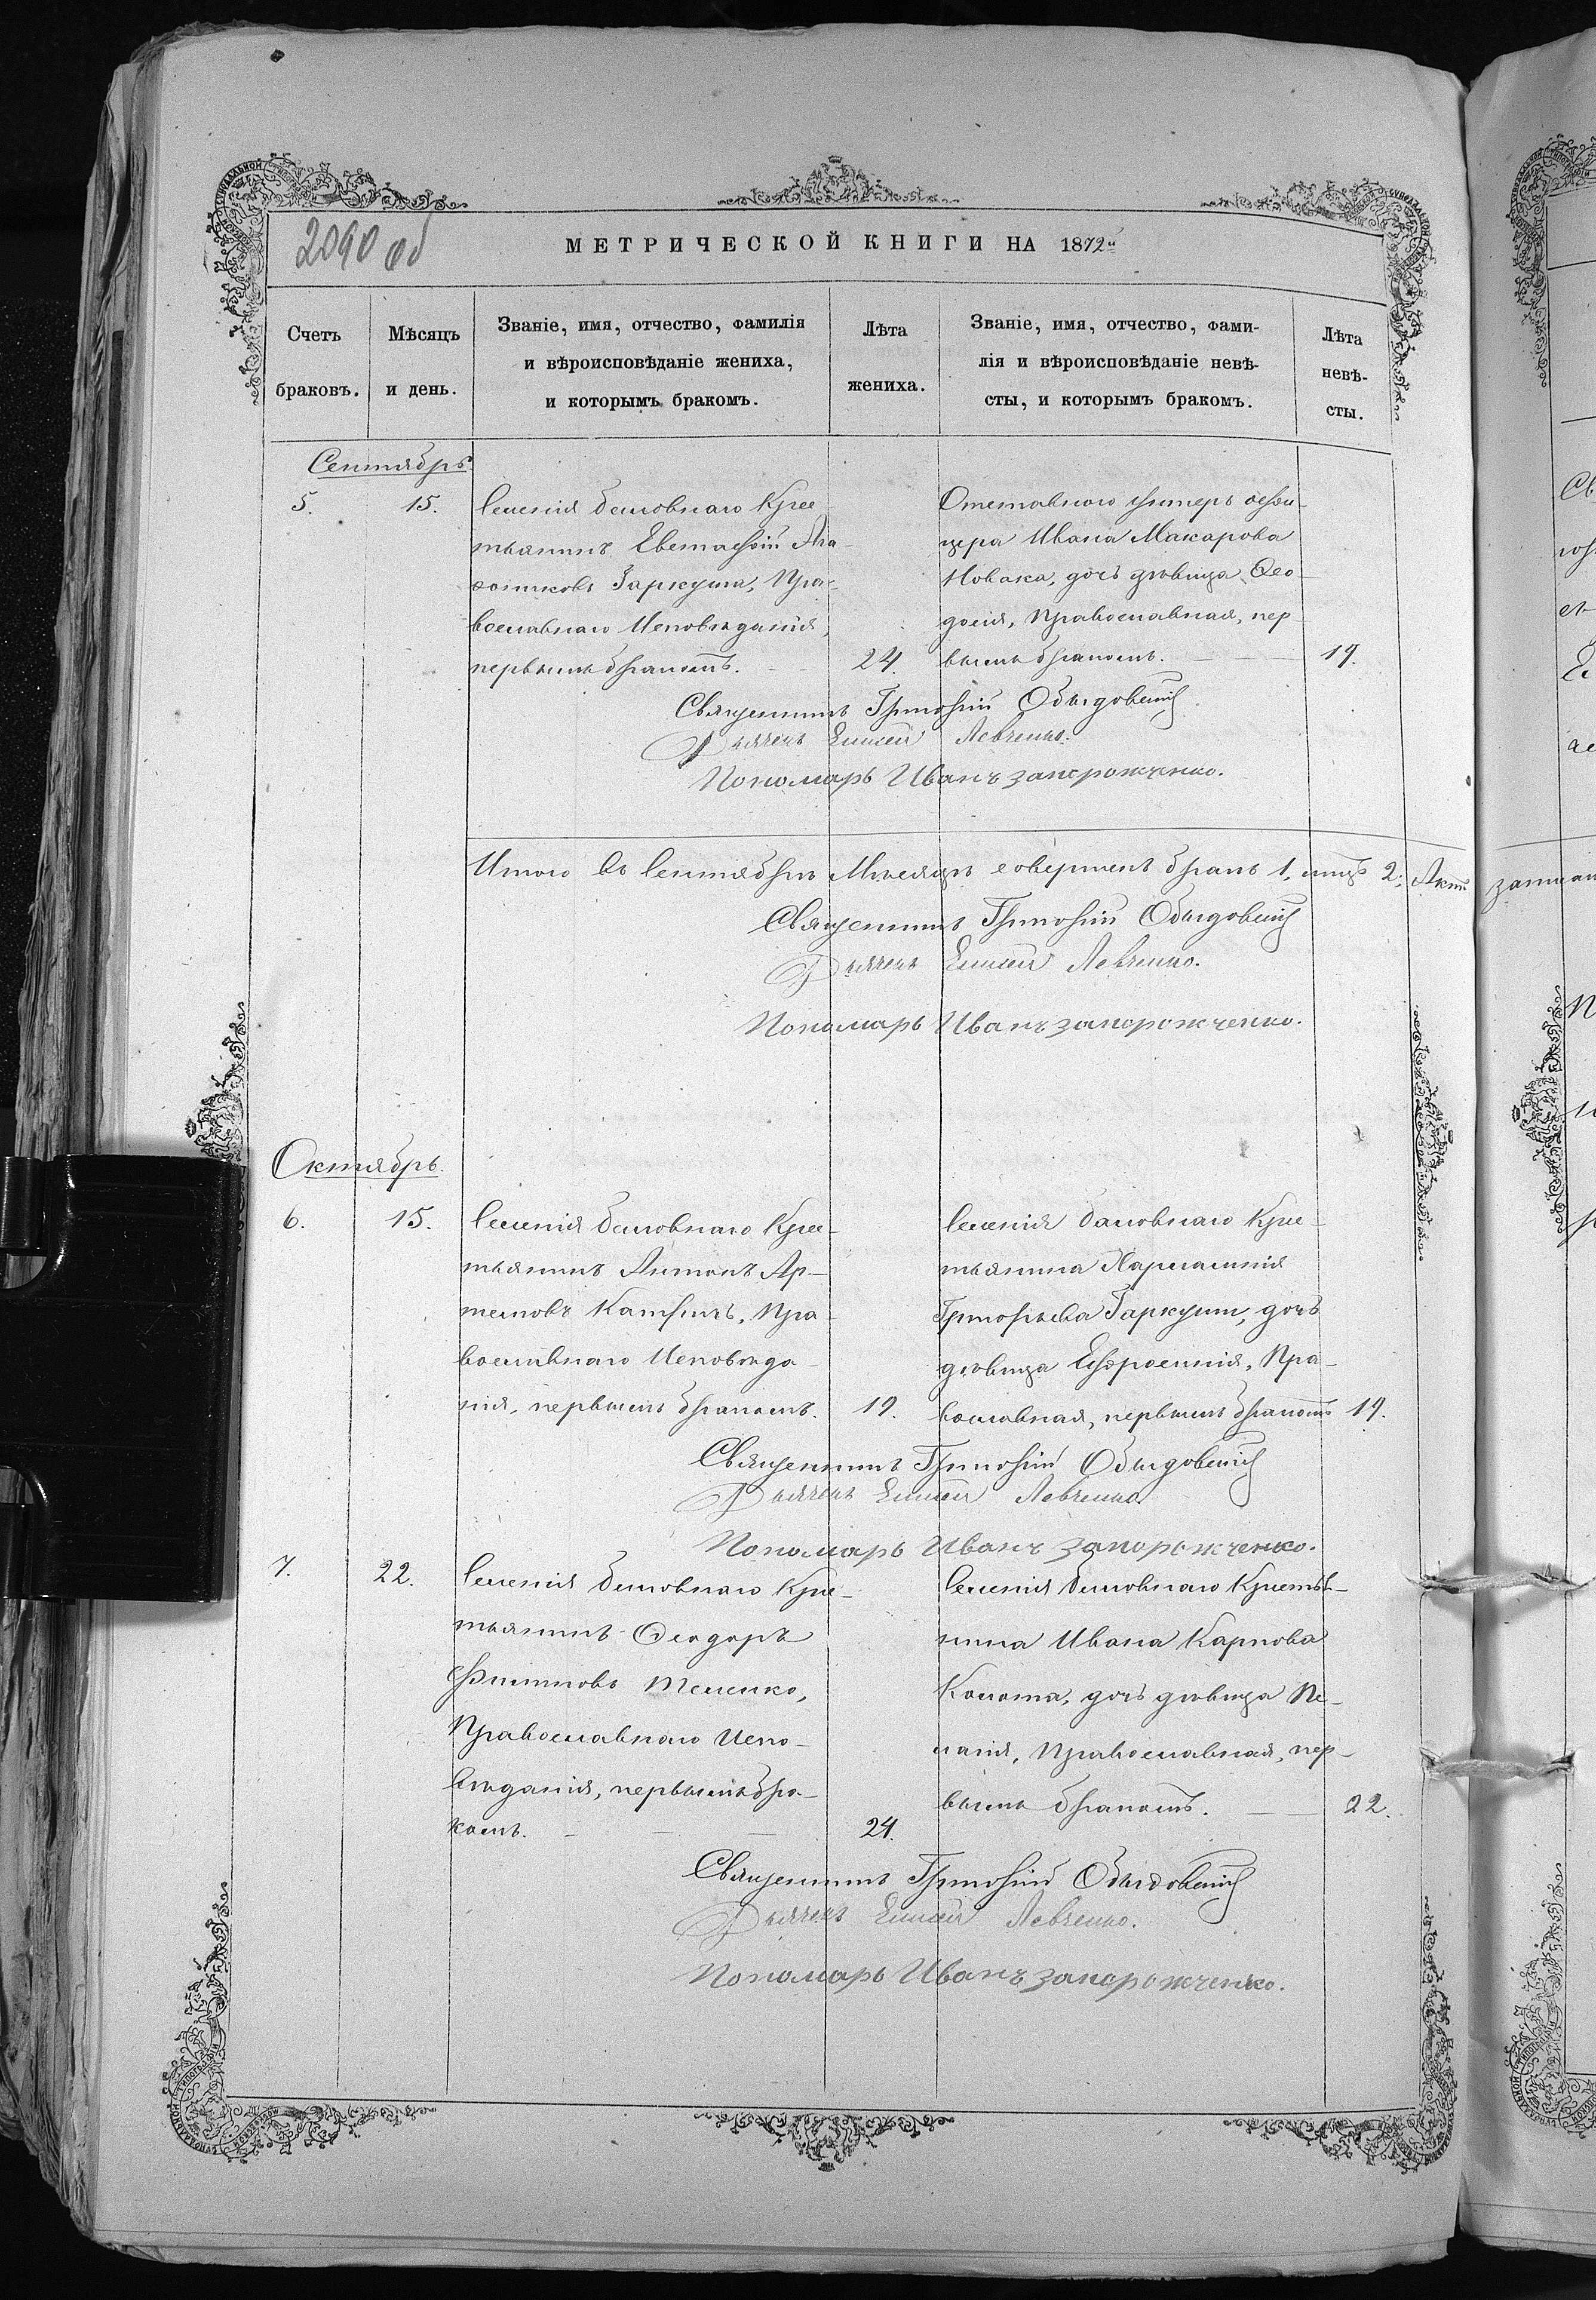 2090 об
МЕТРИЧЕСКОЙ КНИГИ НА 1872й
Счетъ браковъ.
Мѣсяцъ и день.
Званіе, имя, отчество, фамилія
и вѣроисповѣданіе жениха,
и которымъ бракомъ.
Лѣта жениха.
Званіе, имя, отчество, фами-
лія и вѣроисповѣданіе невѣ-
сты, и которымъ бракомъ.
Лѣта невѣ-
сты.
Сентябрь
5. 15.
Селенія Баловнаго Крес
тьянинъ Евстафій
Гаркуша, Пра-
вославнаго Исповѣданія,
первымъ бракомъ. 24.
Отставного Унтеръ офи-
цера Ивана Макарова
Новака, дочь дѣвица Ѳео-
досія, Православная, пер
вымъ бракомъ. 19.
Священникъ Григорій
Дьячекъ Елисей Левченко.
Пономарь Иванъ запорожченко.
Итого въ Сентябрѣ Мѣсяцѣ совершенъ бракъ 1, лицъ 2.
Священникъ Григорій
Дьячекъ Елисей Левченко.
Пономарь Иванъ запорожченко.
Октябрь.
6. 15.
Селенія Баловнаго Крес-
тьянинъ Антонъ Ар-
темовъ Пра-
вославнаго Исповѣда-
нія, первымъ бракомъ. 19.
Селенія Баловнаго Крес-
тьянина Харлампія
Григорьева Гаркуши, дочь
дѣвица Ефросинія, Пра-
вославная, первымъ бракомъ 19.
Священникъ Григорій
Дьячекъ Елисей Левченко.
Пономарь Иванъ запорожченко.
7. 22.
Селенія Баловнаго Крес-
тьянинъ Ѳеодоръ
Филиповъ
Православнаго Испо-
вѣданія, первымъ бра-
комъ. 24.
Селенія Баловнаго Крестья-
нина Ивана Карпова
дочь дѣвица Пе-
лагія, Православная, пер-
вымъ бракомъ. 22.
Священникъ Григорій
Дьячекъ Елисей Левченко.
Пономарь Иванъ запорожченко.